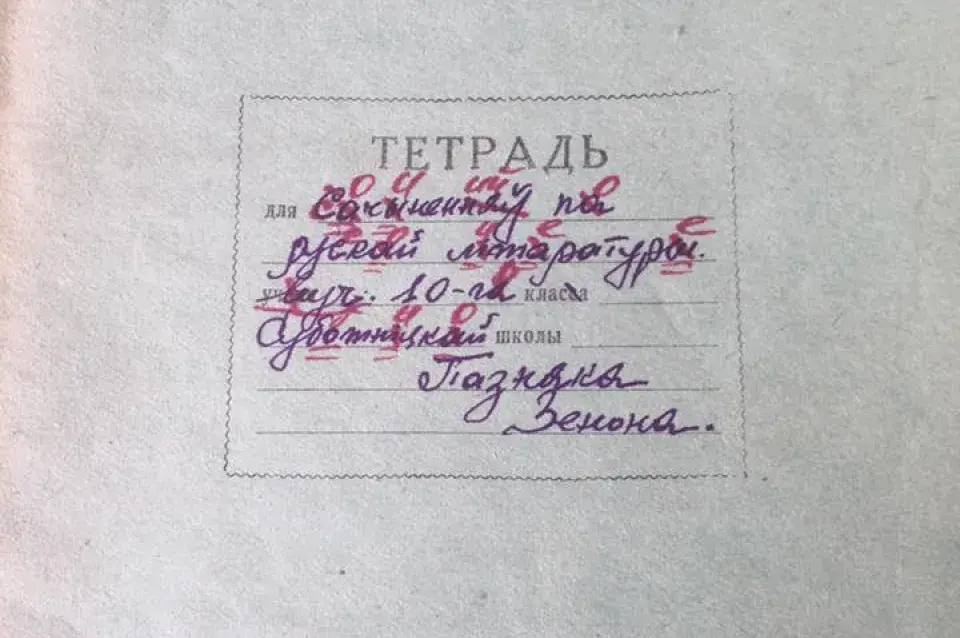 ТЕТРАДЬ
для Сачыненняў па
рускай літаратуры.
вуч. 10-га класса
Суботніцкай школы
Пазняка
Зенона.